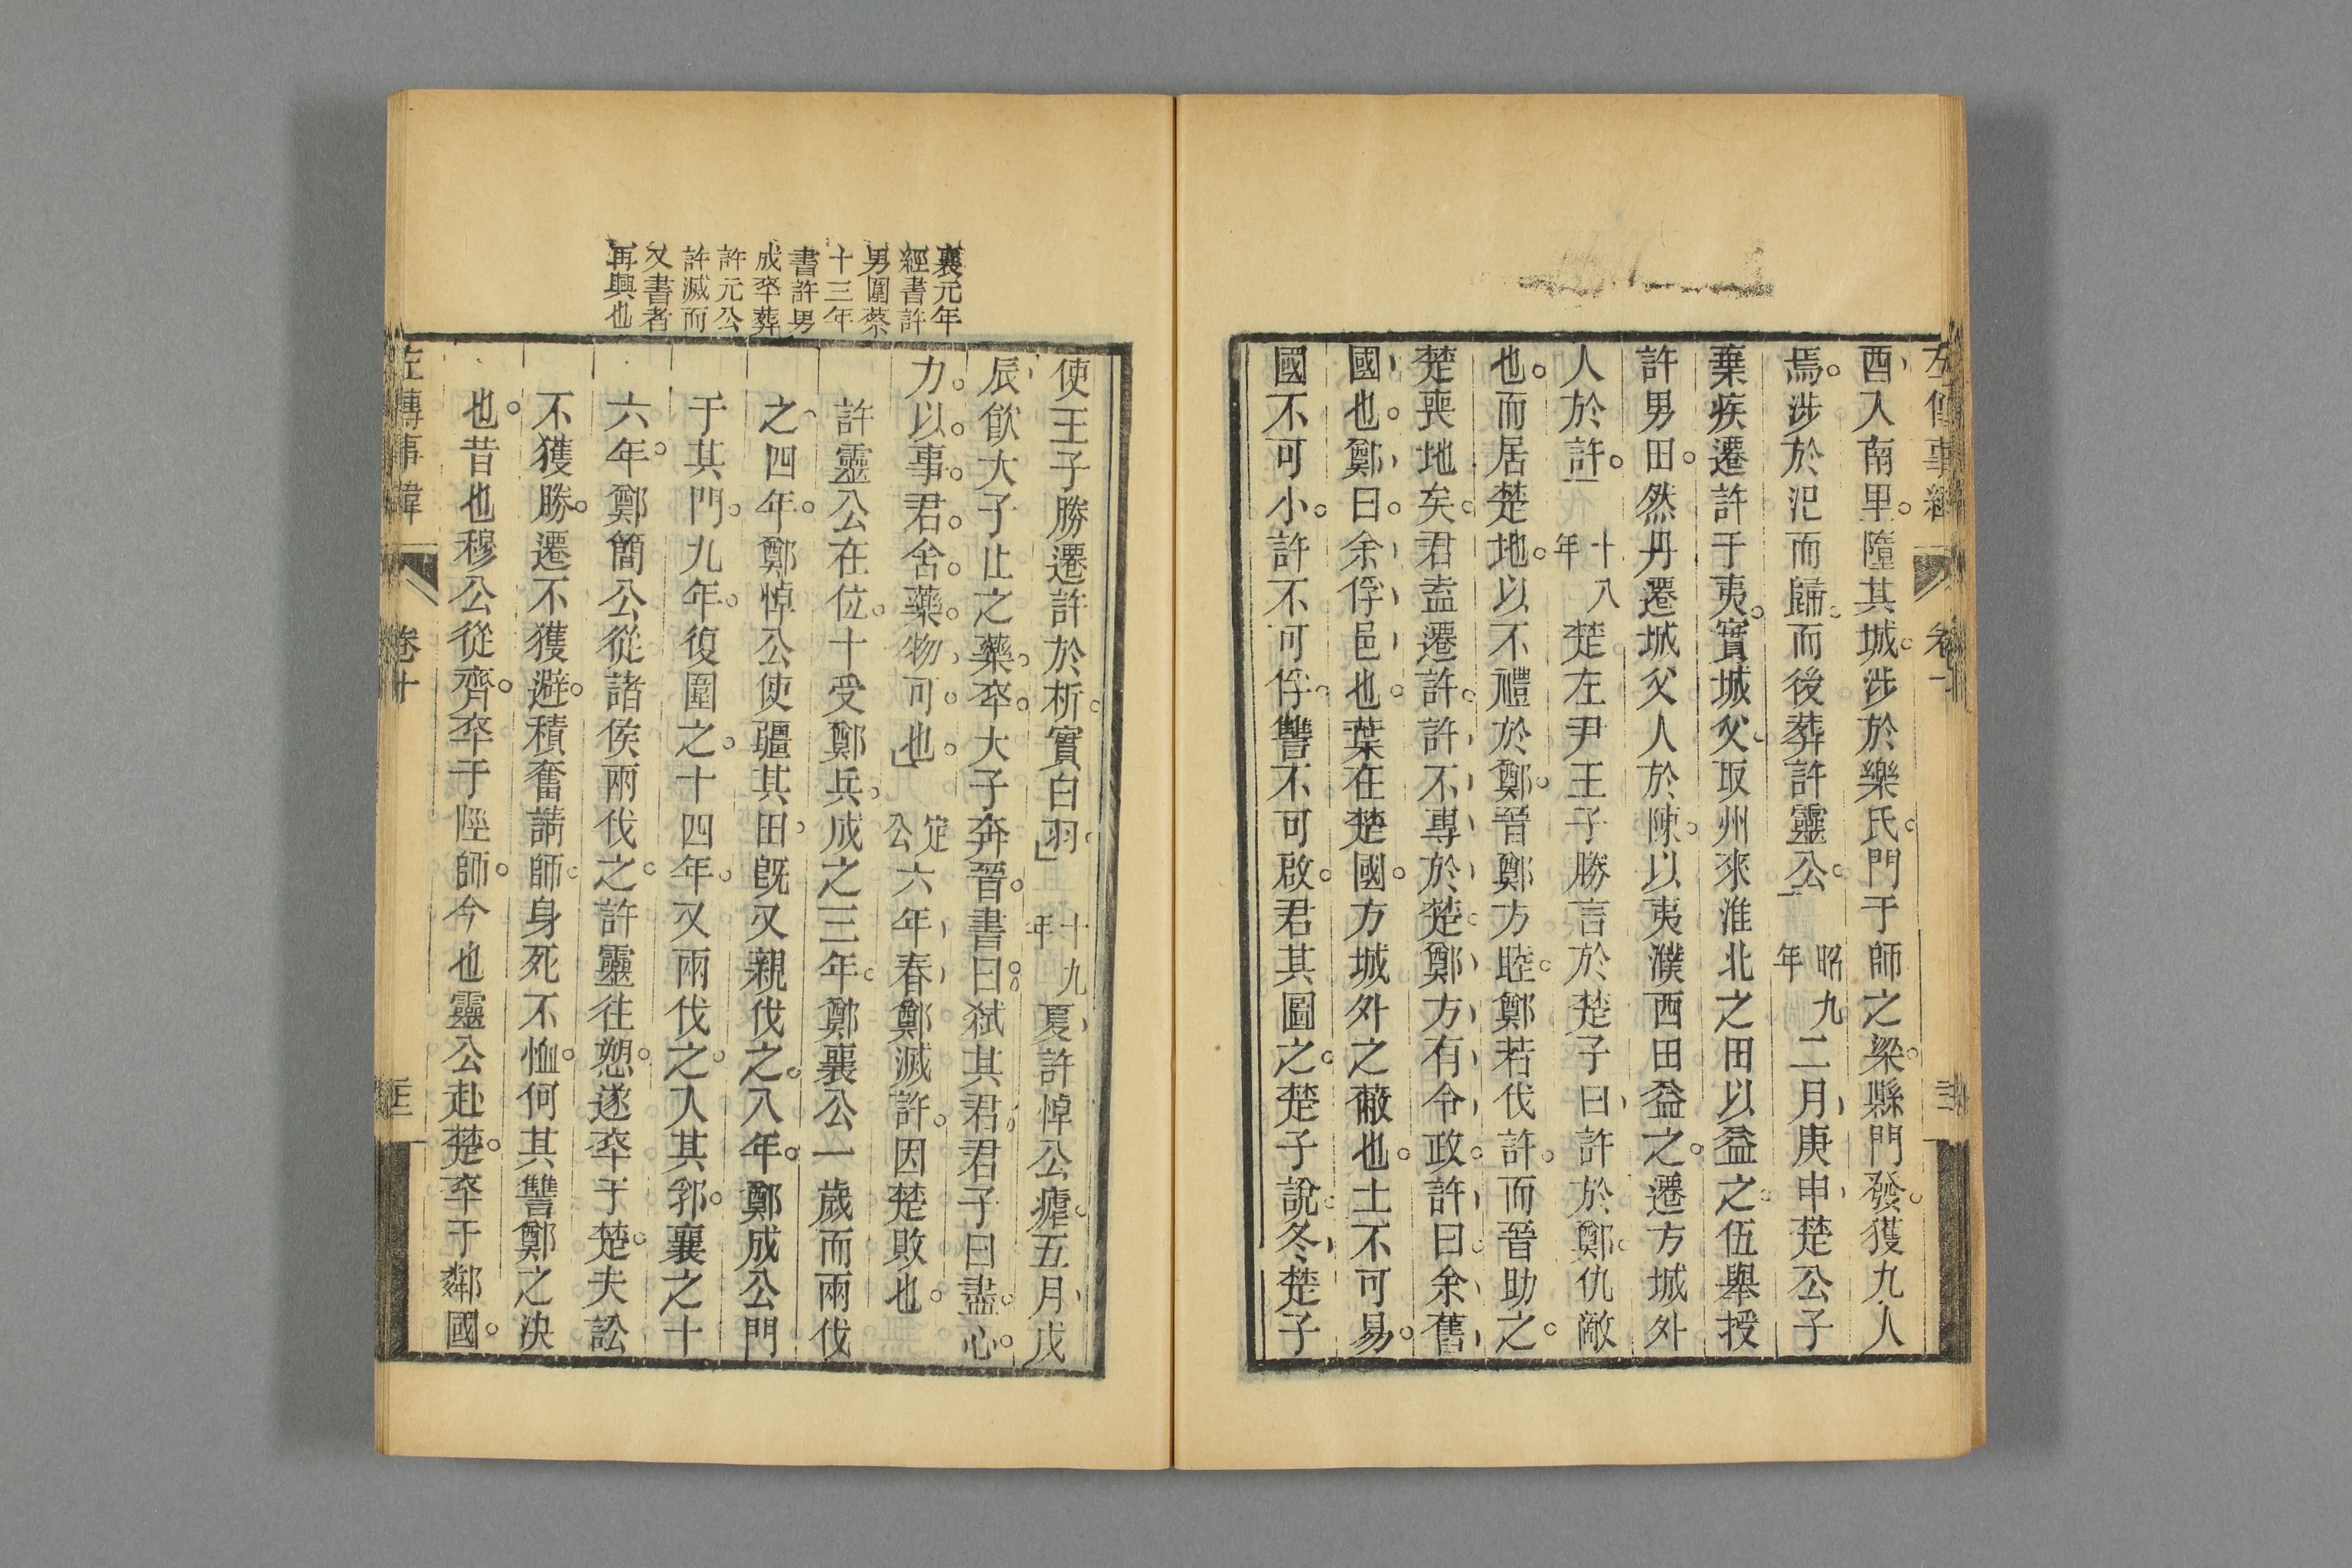 酉入南里隨其城涉於樂氏門于師之梁縣門發獲九人
焉涉於汜而歸而後葬許靈公昭九年二月庚申楚公子
棄疾遷許于夷實城父取州來淮北之田以益之伍舉授
許男田然丹遷城父人於陳以夷濮西田益之遷方城外
人於許十八年楚左尹王子勝言於楚子曰許於鄭仇敵
也而居楚地以不禮於鄭晉鄭方睦鄭若伐許而晉助之
楚喪地矣君盍遷許許不專於楚鄭方有令政許曰余舊
國也鄭曰余俘邑也葉在楚國方城外之蔽也土不可易
國不可小許不可俘讐不可啟君其圖之楚子說冬楚子
襄元年
經書許
男圍蔡
十三年
書許男
成卒葬
許元公
許滅而
又書者
再興也
使王子勝遷許於析實白羽十九年夏許悼公瘧五月戊
辰飮大子止之藥卒大子奔晉書曰弑其君君子曰盡心
力以事君舍藥物可也定公六年春鄭滅許因楚敗也
許靈公在位十受鄭兵成之三年鄭襄公一歲而兩伐
之四年鄭悼公使疆其田旣又親伐之八年鄭成公門
于其門九年復圍之十四年又兩伐之入其郛襄之十
六年鄭簡公從諸侯兩伐之許靈往愬遂卒于楚夫訟
不獲勝遷不獲避積奮請師身死不恤何其讐鄭之決
也昔也穆公從齊卒于陘師今也靈公赴楚卒于鄰國
左傳事緯
卷十